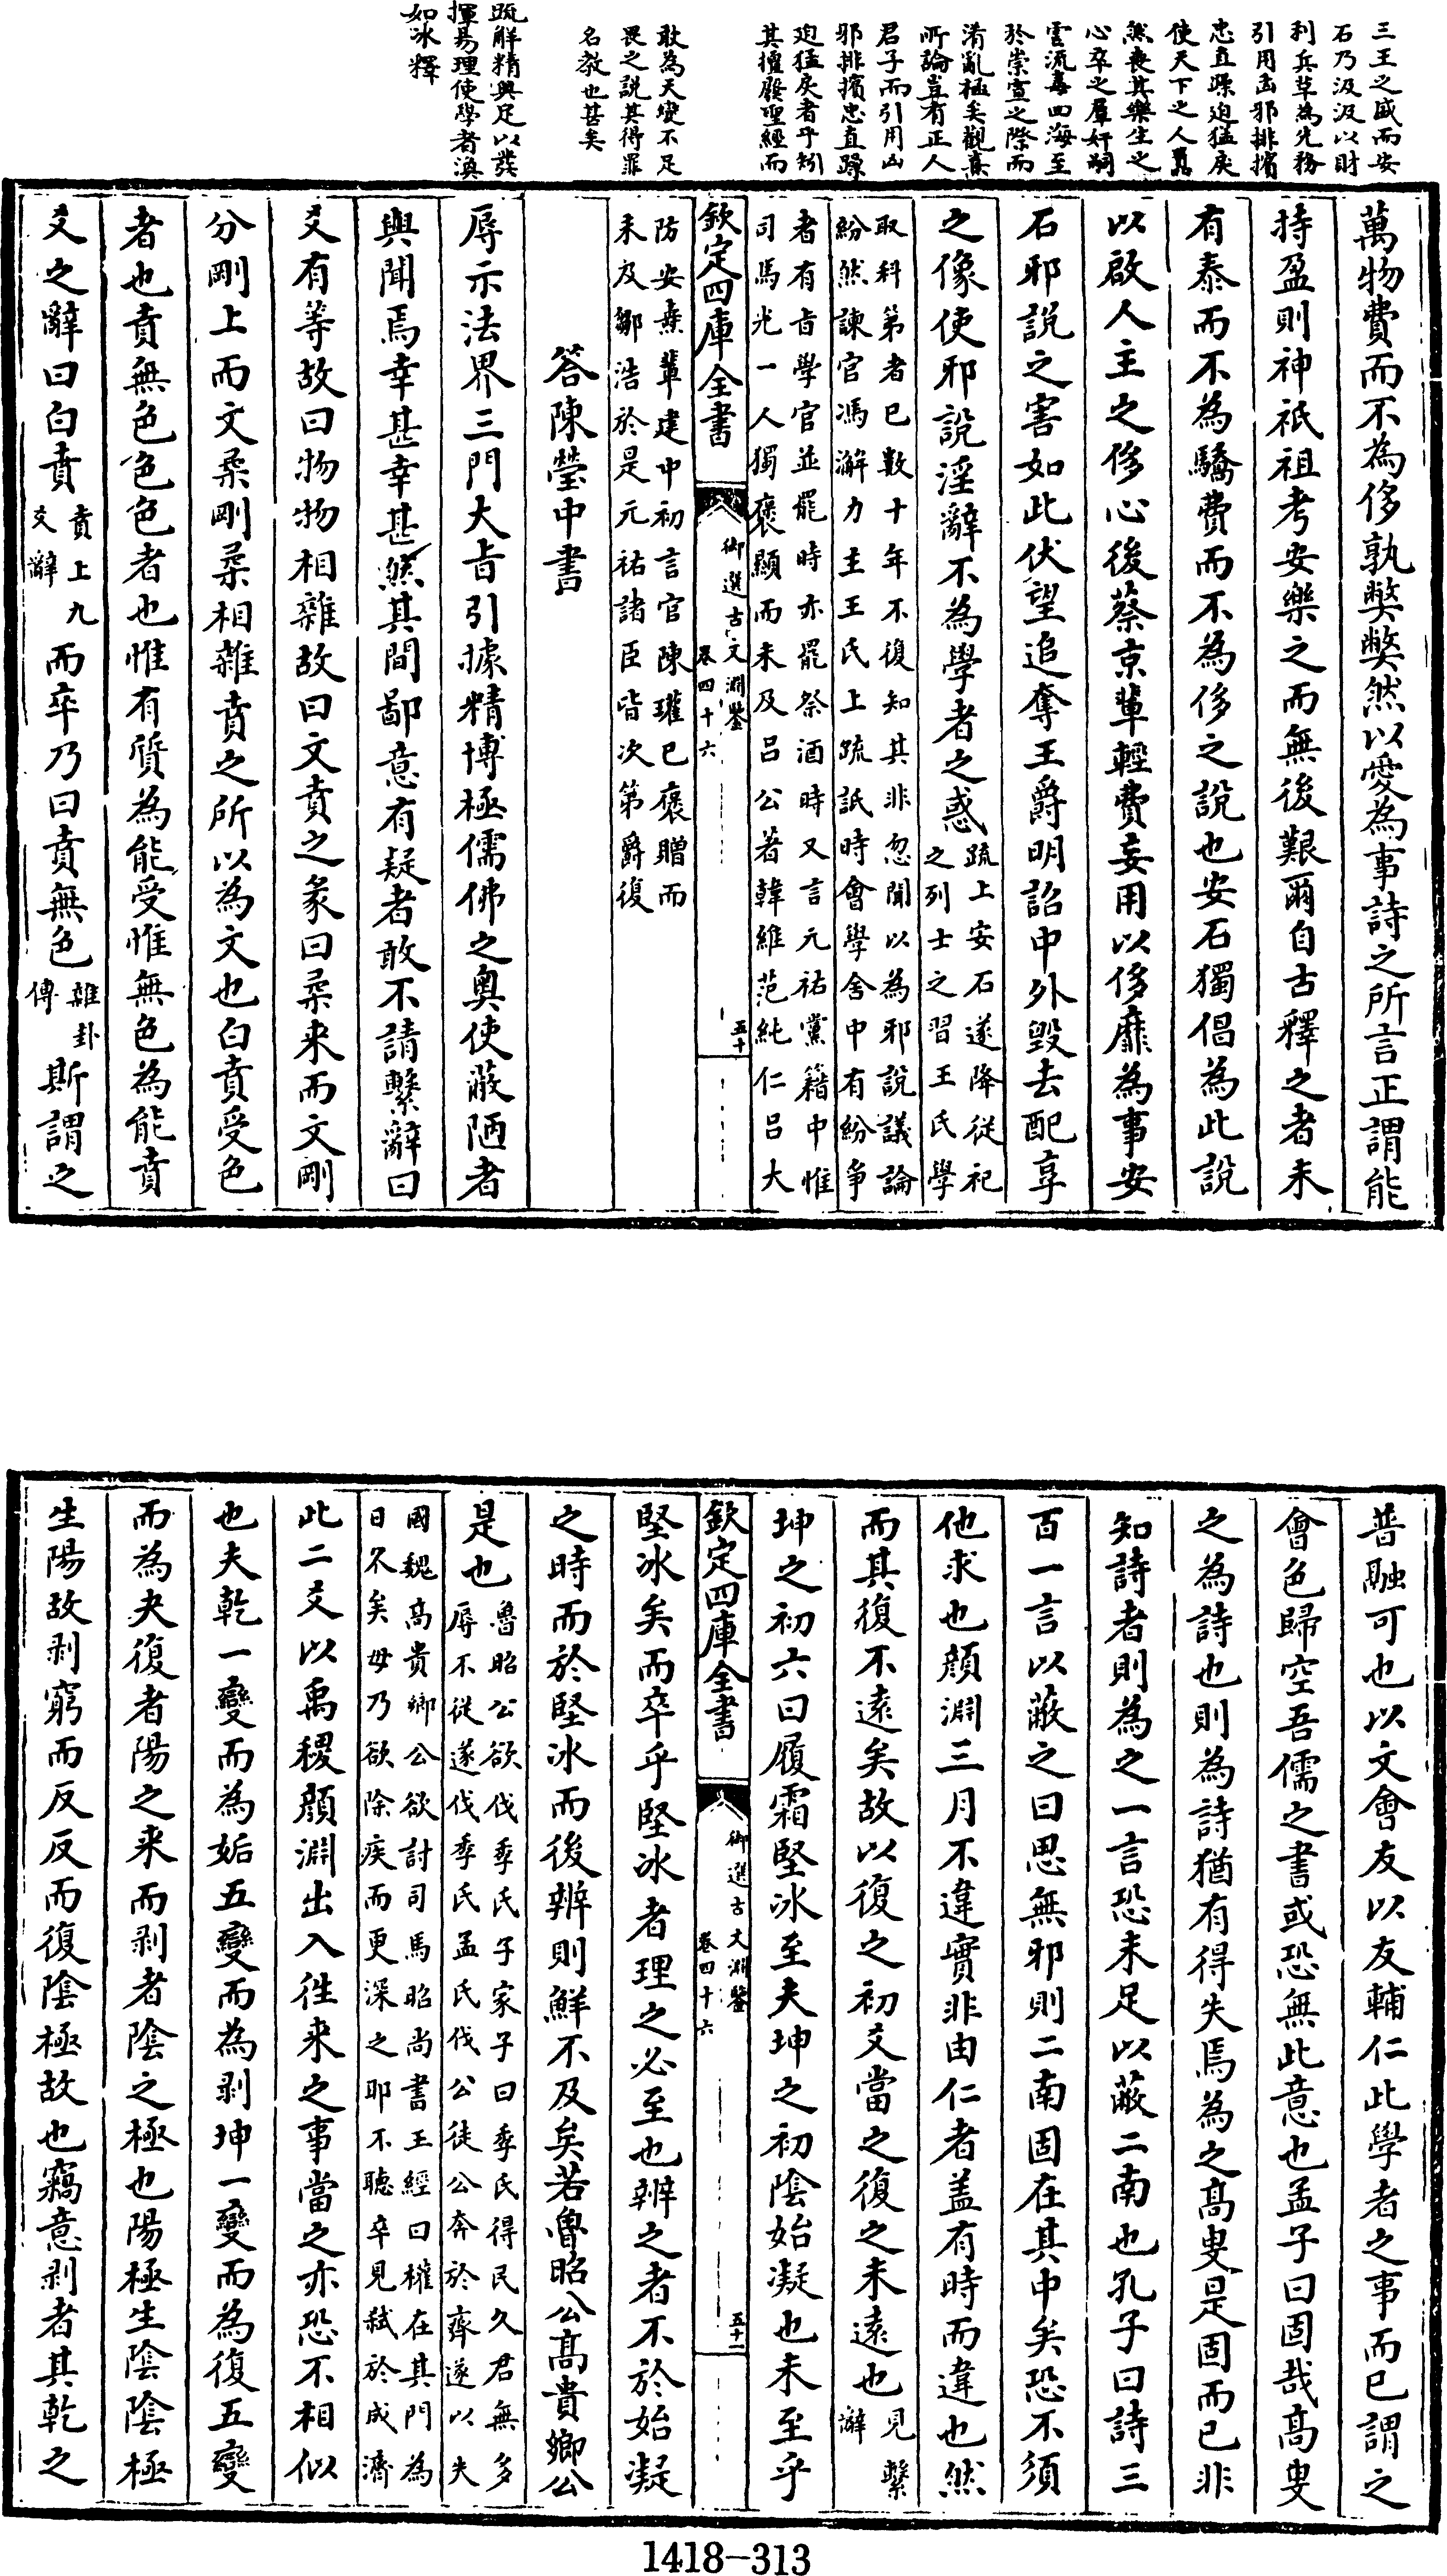 三王之盛而安
石乃汲汲以財
利兵草為先務
引用凶邪排擯
忠直躁迫猛戾
使天下之人囂
然喪其樂生之
心卒之羣奸嗣
虐流毒四海至
於崇宣之際而
淆亂極矣觀真
所論豈有正人
君子而引用凶
邪排擯忠直躁
迫猛戾者乎矧
其擅廢聖經而
敢為天變不足
畏之說其得罪
名教也甚矣
疏解精奥足以發
揮易理使學者渙
如冰釋
萬物費而不為侈孰弊弊然以愛為事詩之所言正謂能
持盈則神祇祖考安樂之而無後艱爾自古釋之者未
有泰而不為驕費而不為侈之說也安石獨倡為此說
以啟人主之侈心後蔡京輩輕費妄用以侈靡為事安
石邪說之害如此伏望追奪王爵明詔中外毀去配享
之像使邪說淫辭不為學者之惑疏上安石遂降從祀
之列士之習王氏學
取科第者已數十年不復知其非忽聞以為邪說議論
紛然諫官馮澥力主王氏上疏詆時會學舍中有紛爭
者有旨學官並罷時亦罷祭酒時又言元祐黨籍中惟
司馬光一人獨褒顯而未及呂公著韓維范純仁呂大
欽定四庫全書
御選古文淵鑒
卷四十六
五十
防安燾輩建中初言官陳瓘已褒贈而
未及鄒浩於是元祐諸臣皆次第爵復
答陳瑩中書
辱示法界三門大旨引據精博極儒佛之奧使蔽陋者
與聞焉幸甚幸甚然其間鄙意有疑者敢不請繫辭曰
爻有等故曰物物相雜故曰文賁之彖曰柔来而文剛
分剛上而文柔剛柔相雜賁之所以為文也白賁受色
者也賁無色色色者也惟有質為能受惟無色為能賁
爻之辭曰白賁賁上九
爻辭而卒乃曰賁無色雜卦
傳斯謂之
普融可也以文會友以友輔仁此學者之事而已謂之
會色歸空吾儒之書或恐無此意也孟子曰固哉高叟
之為詩也則為詩猶有得失焉為之高叟是固而已非
知詩者則為之一言恐未足以蔽二南也孔子曰詩三
百一言以蔽之曰思無邪則二南固在其中矣恐不須
他求也顔淵三月不違實非由仁者盖有時而違也然
而其復不遠矣故以復之初爻當之復之未遠也見繫
辭
坤之初六曰履霜堅冰至夫坤之初陰始凝也未至乎
欽定四庫全書
御選古文淵鑒
卷四十六
五十一
堅冰矣而卒乎堅冰者理之必至也辨之者不於始凝
之時而於堅冰而後辨則鮮不及矣若魯昭公高貴鄉公
是也魯昭公欲伐季氏子家子曰季氏得民久君無多
辱不從遂伐季氏孟氏伐公徒公奔於齊遂以失
國魏高貴鄉公欲討司馬昭尚書王經曰權在其門為
日久矣毋乃欲除疾而更深之耶不聽卒見弒於成濟
此二爻以禹稷顔淵出入往来之事當之亦恐不相似
也夫乾一變而為姤五變而為剥坤一變而為復五變
而為夬復者陽之来而剥者陰之極也陽極生陰陰極
生陽故剥窮而反反而復陰極故也竊意剥者其乾之
1418-313